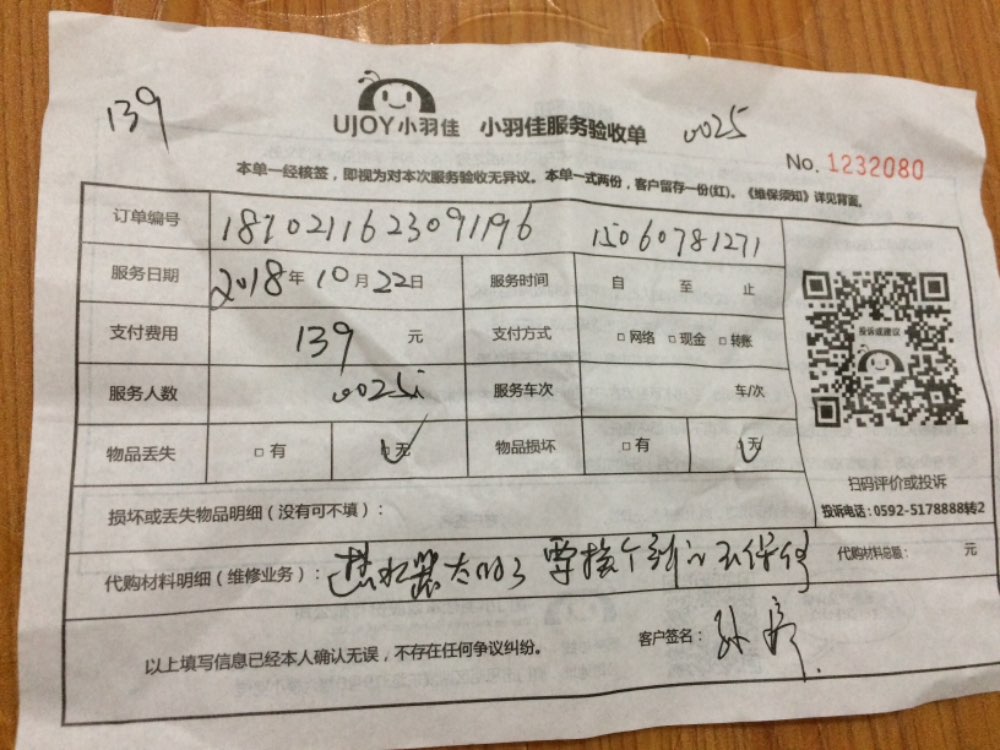 139
UJOY小羽佳 小羽佳服务验收单 0025
No. 1232080
本单一经核签，即视为对本次服务验收无异议。本单一式两份，客户留存一份(红)。《维保须知》详见背面。
订单编号 1810211623091196 15060781271
服务日期 2018年10月22日 服务时间 自 至 止
支付费用 139 元 支付方式 □网络 □现金 □转账
投诉或建议
服务人数 0025 服务车次 车/次
物品丢失 □有 □无 物品损坏 □有 □无
扫码评价或投诉
损坏或丢失物品明细（没有可不填）：
投诉电话：0592-5178888转2
代购材料明细（维修业务）：热水器太 要接个 代购材料总额： 元
以上填写信息已经本人确认无误，不存在任何争议纠纷。 客户签名：孙